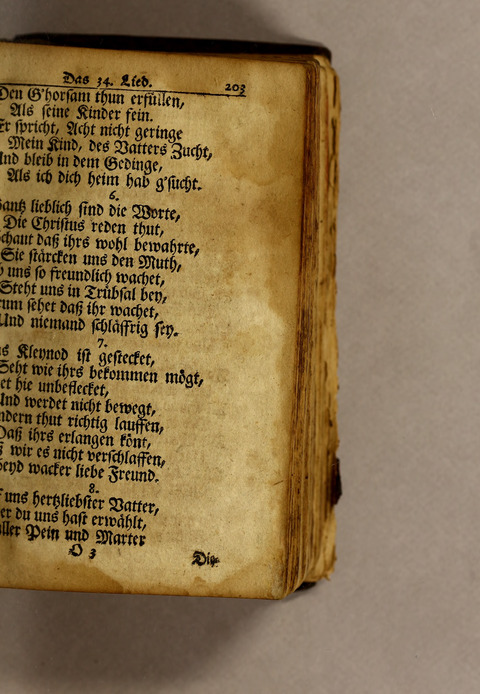 Das 34. Lied. 203
Den G'horsam thun erfüllen,
Als seine Kinder fein.
Er spricht, Acht nicht geringe
Mein Kind, des Vatters Zucht,
Und bleib in dem Gedinge,
Als ich dich heim hab g'sucht.
6.
Gantz lieblich sind die Worte,
Die Christus reden thut,
Schaut daß ihrs wohl bewahrte,
Sie stärcken uns den Muth,
uns so freundlich wachet,
Steht uns in Trübsal bey,
rum sehet daß ihr wachet,
Und niemand schläffrig sey.
7.
Kleynod ist gestecket,
Seht wie ihrs bekommen mögt,
hie unbeflecket,
Und werdet nicht bewegt,
ndern thut richtig lauffen,
Daß ihrs erlangen könt,
wir es nicht verschlaffen,
Seyd wacker liebe Freund.
8.
uns hertzliebster Vatter,
er du uns hast erwählt,
aller Pein und Marter
O 3 Die